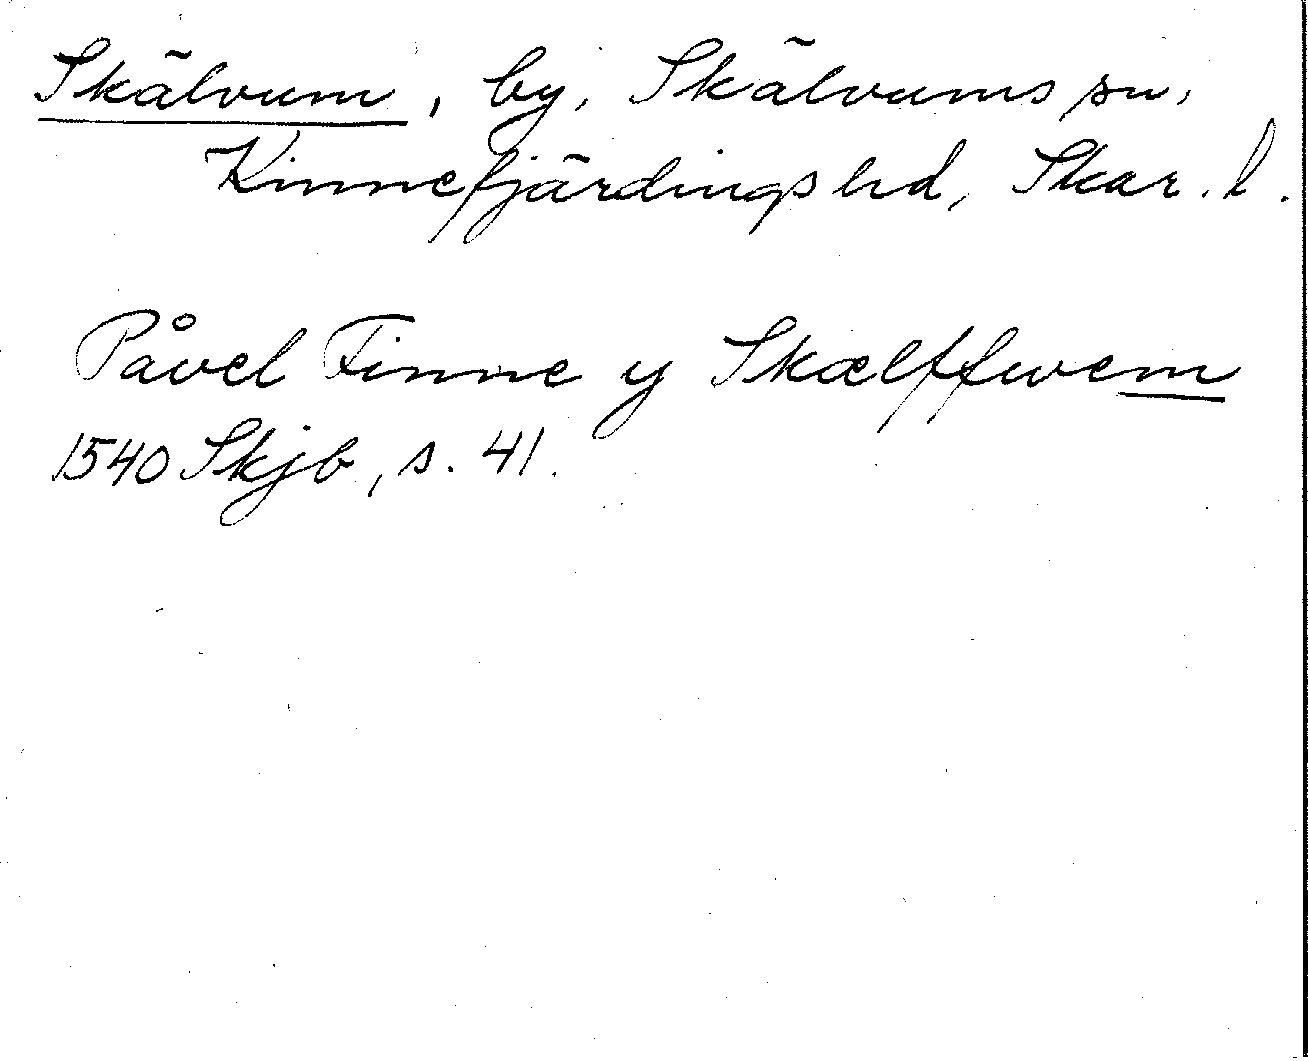 Skälvum, by, Skälvums sn,
Kinnefjärdings hd, Skar. l.
Påvel Finne y Skælffwem
1540 Skjb, s. 41.